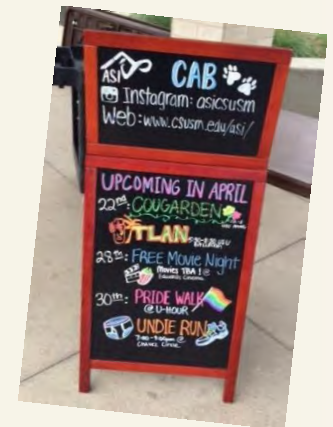 ASI CAB
Instagram: asicsusm
Web: www.csusm.edu/asi/
UPCOMING IN APRIL
22nd: COUGARDEN
TLAN
28th: FREE Movie Night
Movies TBA! @
30th: PRIDE WALK
@ U-HOUR
UNDIE RUN